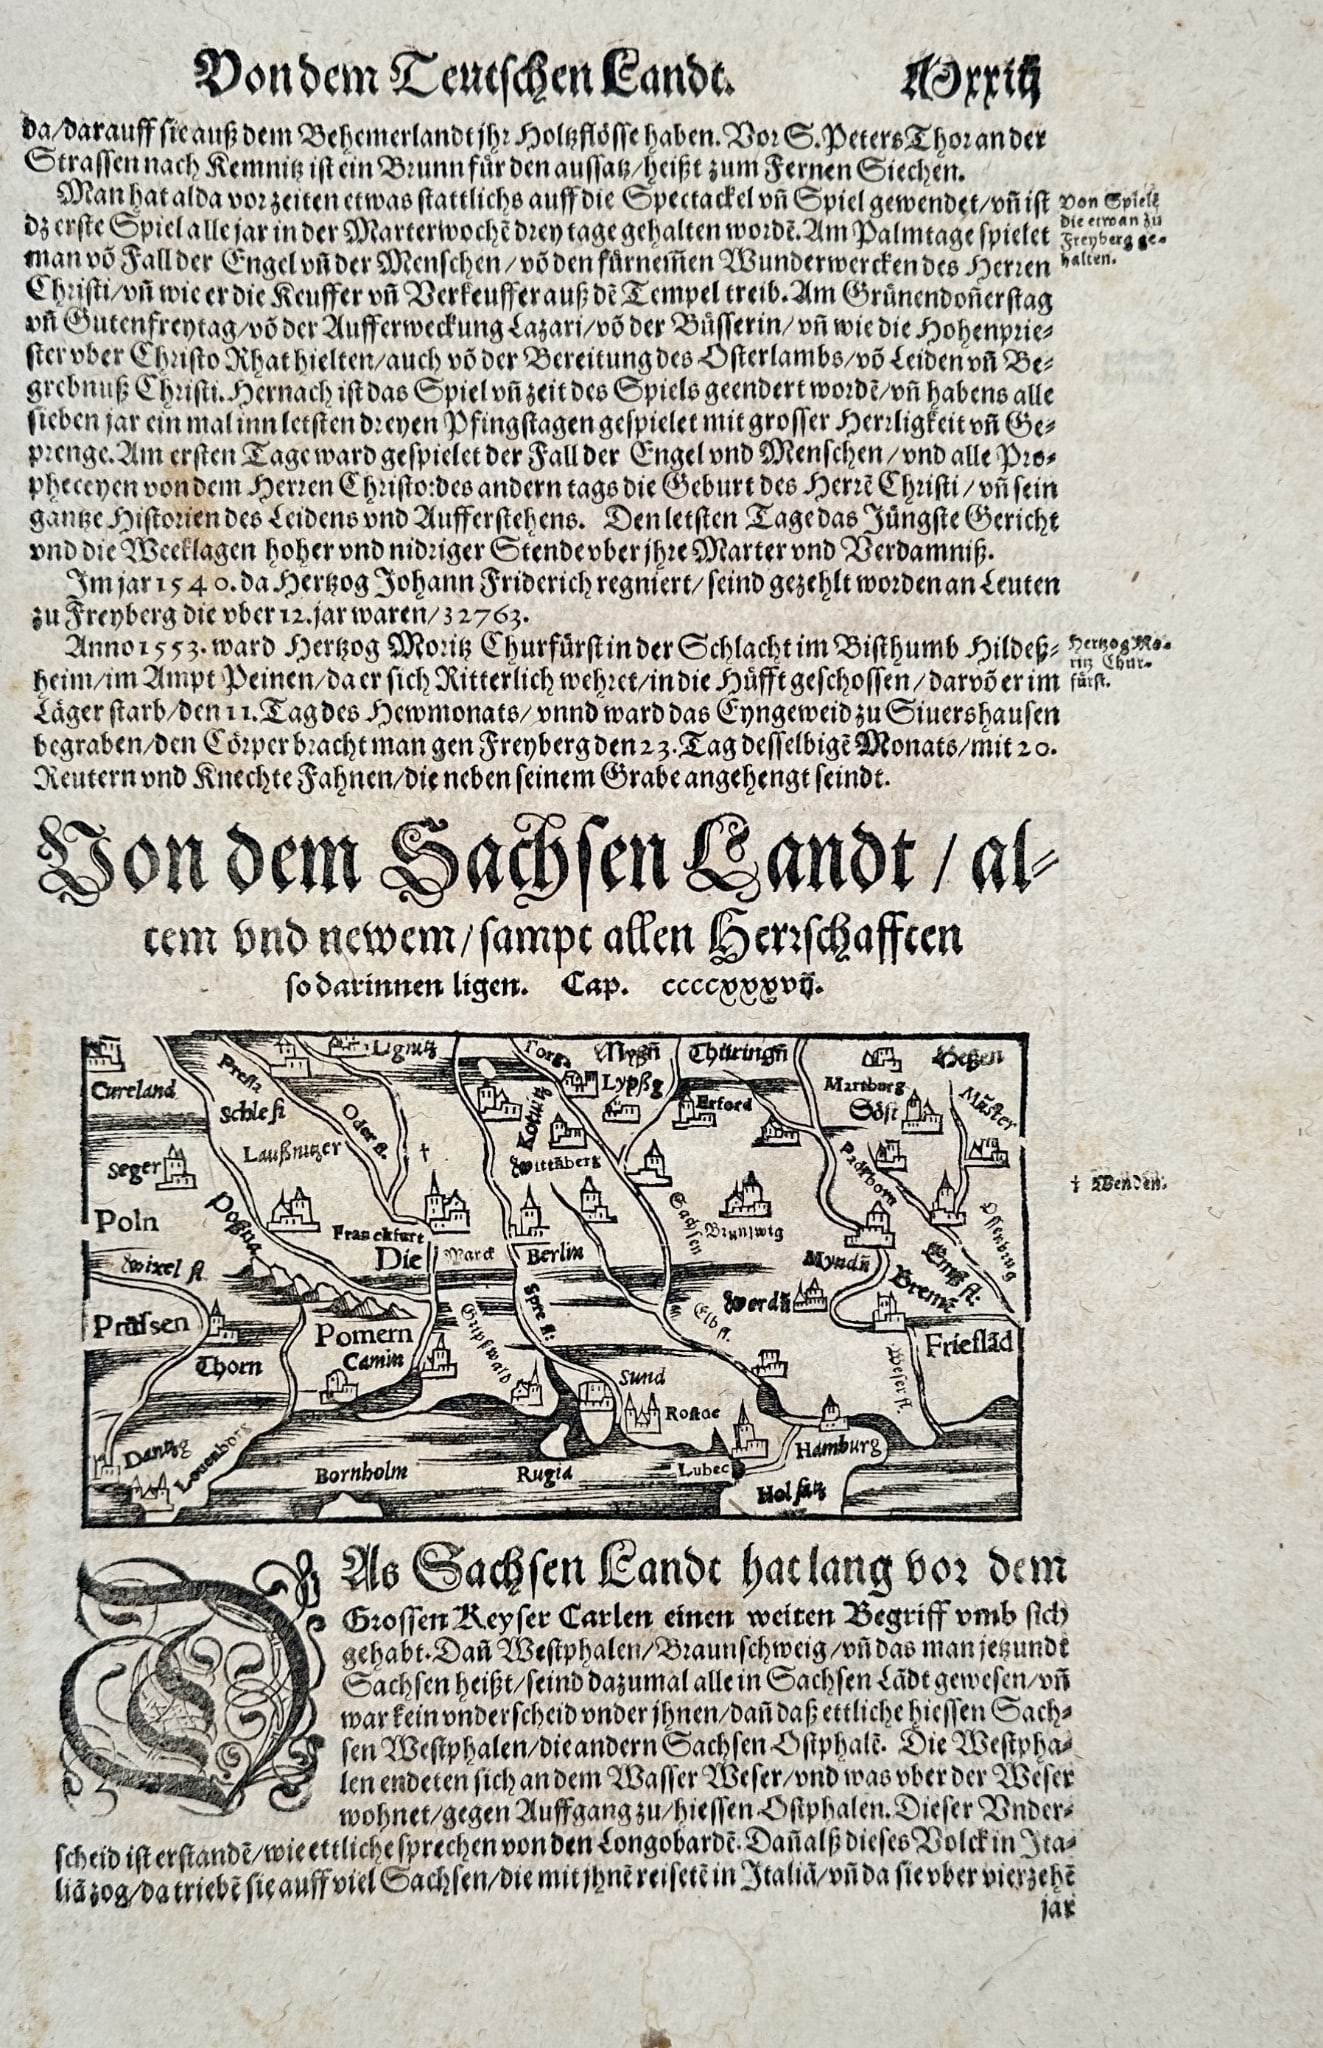 Von dem Teutschen Landt.
da/darauff sie auß dem Behemerlandt jhr Holtzflösse haben. Vor S. Peters Thor an der
Strassen nach Kemnitz ist ein Brunn für den aussatz/heißt zum Fernen Siechen.
Man hat alda vor zeiten etwas stattlichs auff die Spectackel vñ Spiel gewendet/vñ ist
dz erste Spiel alle jar in der Marterwochẽ drey tage gehalten wordẽ. Am Palmtage spielet
man võ Fall der Engel vñ der Menschen/võ den fürnem̃en Wunderwercken des Herren
Christi/vñ wie er die Keuffer vñ Verkeuffer auß dẽ Tempel treib. Am Grünendoñerstag
vñ Gutenfreytag/võ der Aufferweckung Lazari/võ der Büsserin/vñ wie die Hohenprie-
ster vber Christo Rhat hielten/auch võ der Bereitung des Osterlambs/võ Leiden vñ Be-
grebnuß Christi. Hernach ist das Spiel vñ zeit des Spiels geendert wordẽ/vñ habens alle
sieben jar ein mal inn letsten dreyen Pfingstagen gespielet mit grosser Herrligkeit vñ Ge-
prenge. Am ersten Tage ward gespielet der Fall der Engel vnd Menschen/vnd alle Pro-
pheceyen von dem Herren Christo: des andern tags die Geburt des Herrẽ Christi/vñ sein
gantze Historien des Leidens vnd Aufferstehens. Den letsten Tage das Jüngste Gericht
vnd die Weeklagen hoher vnd nidriger Stende vber jhre Marter vnd Verdamniß.
Von Spielẽ
die etwan zu
Freyberg ge-
halten.
Im jar 1540. da Hertzog Johann Friderich regniert/seind gezehlt worden an Leuten
zu Freyberg die vber 12. jar waren/32763.
Anno 1553. ward Hertzog Moritz Churfürst in der Schlacht im Bisthumb Hildeß-
heim/im Ampt Peinen/da er sich Ritterlich wehret/in die Hüfft geschossen/darvõ er im
Läger starb/den 11. Tag des Hewmonats/vnnd ward das Eyngeweid zu Siuershausen
begraben/den Cörper bracht man gen Freyberg den 23. Tag desselbigẽ Monats/mit 20.
Reutern vnd Knechte Fahnen/die neben seinem Grabe angehengt seindt.
Hertzog Mo-
ritz Chur-
fürst.
Von dem Sachsen Landt/al-
tem vnd newem/sampt allen Herrschafften
so darinnen ligen. Cap. ccccxxxvij.
Lignitz
Torg
Mysñ
Thüringñ
Hessen
Cureland
Schlesi
Oder fl.
Kotwitz
Lypsßg
Erford
Martburg
Söst
Müster
Seger
Laußnitzer
†
Wittãberg
Padelborn
† Wenden.
Poln
Poßna
Franckfurt
Die Marck
Berlin
Sachsen
Brunswig
Myndñ
Ossenbrug
Wixel fl.
Werdñ
Emß fl.
Bremẽ
Prüssen
Thorn
Pomern
Camin
Gripßwald
Spre fl:
Elb fl.
Weser fl.
Frieslãd
Sund
Rostoc
Dantzg
Louenborg
Bornholm
Rugia
Lubec
Hamburg
Holsatz
DAs Sachsen Landt hat lang vor dem
Grossen Keyser Carlen einen weiten Begriff vmb sich
gehabt. Dañ Westphalen/Braunschweig/vñ das man jetzundt
Sachsen heißt/seind dazumal alle in Sachsen Lãdt gewesen/vñ
war kein vnderscheid vnder jhnen/dañ daß ettliche hiessen Sach-
sen Westphalen/die andern Sachsen Ostphalẽ. Die Westpha-
len endeten sich an dem Wasser Weser/vnd was vber der Weser
wohnet/gegen Auffgang zu/hiessen Ostphalen. Dieser Vnder-
scheid ist erstandẽ/wie ettliche sprechen von den Longobardẽ. Dañ alß dieses Volck in Ita-
liã zog/da triebẽ sie auff viel Sachsen/die mit jhnẽ reisetẽ in Italiã/vñ da sie vber vierzehẽ
jar